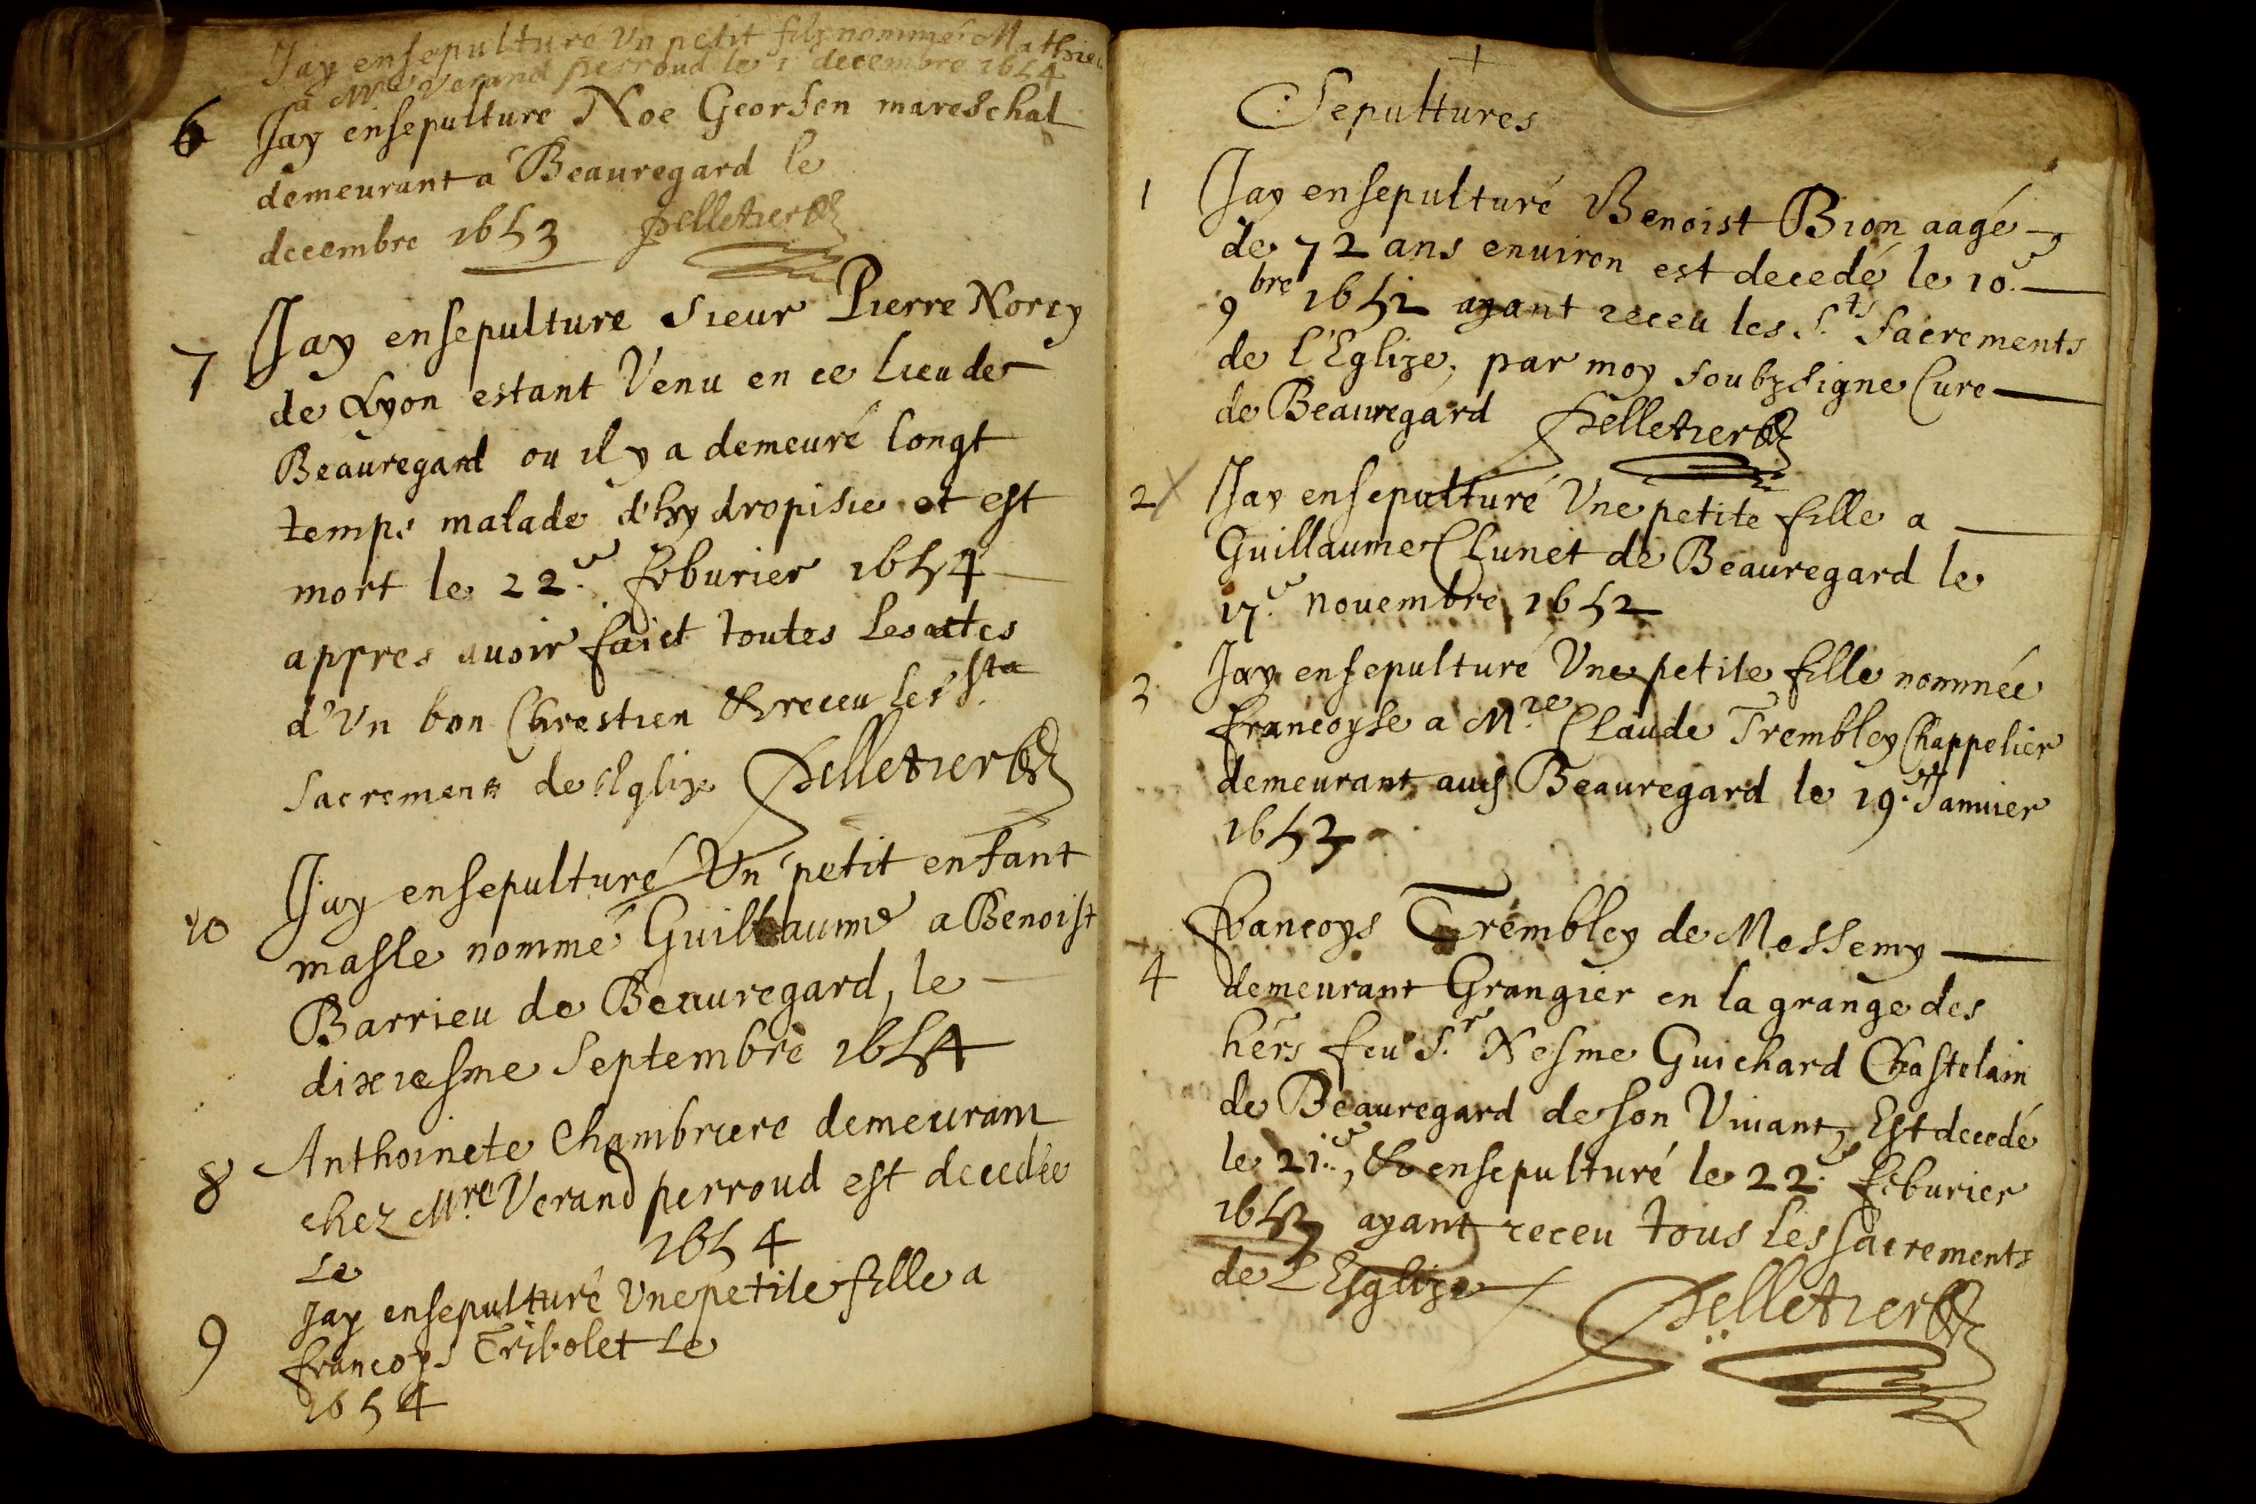 Jay ensepulturé Vn petit filz nommé Mathieu
a Mre Verand perroud le 1 decembre 1654
6 Jay ensepulture Noe Georsen mareschal
demeurant a Beauregard le
decembre 1653 Pelletier
7 Jay ensepulture Sieur Pierre Norry
de Lyon estant Venu en ce Lieu de
Beauregard ou il y a demeuré longt
temps malade d'hydropisie et est
mort le 22e feburier 1654
appres auoir faict toutes Les actes
d'Vn bon Chrestien & receu les Sta
Sacrements de l'Eglize Pelletier
10 Jay ensepulturé Vn petit enfant
masle nommé Guillaume a Benoist
Barrieu de Beauregard, le
dixiesme Septembre 1654
8 Anthoinete Chambriere demeurant
chez Mre Verand perroud est decedée
Le 1654
9 Jay ensepulturé Vne petite fille a
francoys Tribolet Le
1654
Sepultures
1 Jay ensepulturé Benoist Bion aagé
de 72 ans enuiron est decedé le 10e
9bre 1652 ayant receu les Sts Sacrements
de l'Eglize, par moy soubzsigne Cure
de Beauregard Pelletier
2 Jay ensepulturé Vne petite fille a
Guillaume Clunet de Beauregard le
17e nouembre 1652
3 Jay ensepulturé Vne petite fille nommée
francoyse a Mre Claude Trembley Chappelier
demeurant auds Beauregard le 19e Januier
1653
4 francoys Trembley de Messemy
demeurant Grangier en la grange des
hers feu Sr Nesme Guichard Chastelain
de Beauregard de son Viuant, Est decedé
le 21e, & ensepulturé le 22e feburier
1653 ayant receu tous les sacrements
de L'Esglize Pelletier